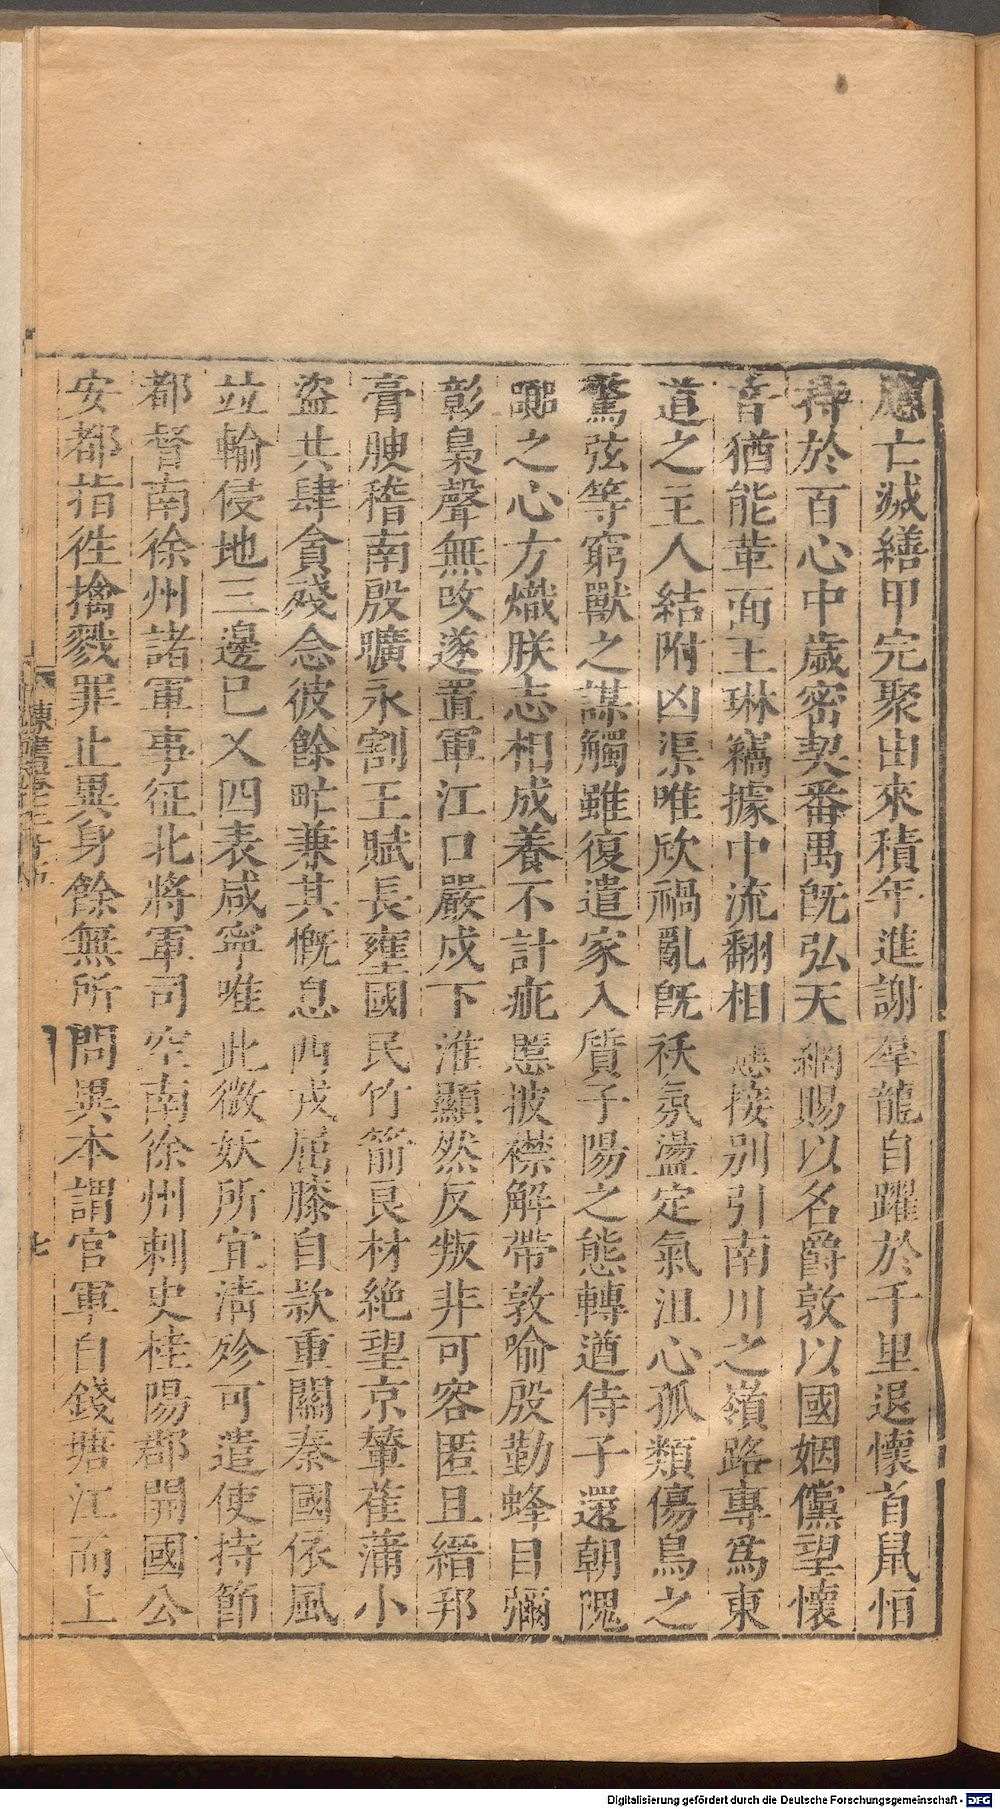 應亡滅繕甲完聚由來積年進謝羣龍自躍於千里退懷首鼠恒
持於百心中歲密契番禺旣弘天網賜以名爵敦以國姻儻望懷
音猶能革面王琳竊據中流翻相應接別引南川之嶺路專爲東
道之主人結附凶渠唯欣禍亂旣祅氛盪定氣沮心孤類傷鳥之
驚弦等窮獸之謀觸雖復遣家入質子陽之態轉遒侍子還朝隗
嚻之心方熾朕志相成養不計疵慝披襟解帶敦喻殷勤蜂目彌
彰梟聲無改遂置軍江口嚴戍下淮顯然反叛非可容匿且縉邦
膏腴稽南殷曠永割王賦長壅國民竹箭良材絶望京輦萑蒲小
盜共肆貪殘念彼餘甿兼其慨息西戎屈膝自款重關秦國依風
竝輸侵地三邊已乂四表咸寧唯此微妖所宜淸殄可遣使持節
都督南徐州諸軍事征北將軍司空南徐州刺史桂陽郡開國公
安都指徃擒戮罪止異身餘無所問異本謂官軍自錢塘江而上
七
Digitalisierung gefördert durch die Deutsche Forschungsgemeinschaft - DFG